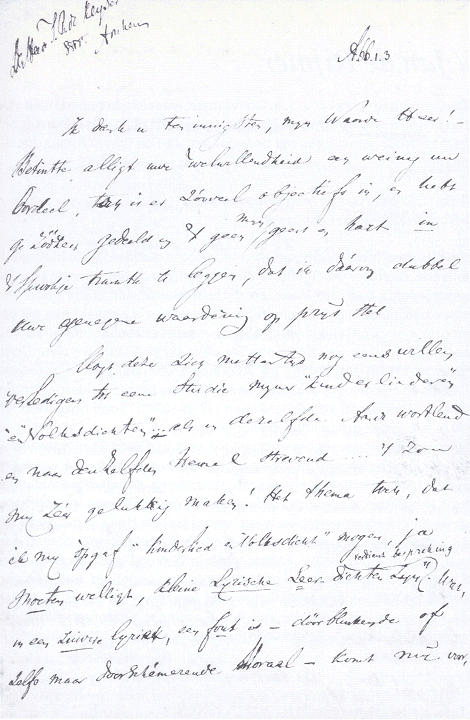 Arnhem
Afb. 1.3
Ik dank u ten innigsten, mijn Waarde Heer! -
Betintte alligt uwe welwillendheid een weinig uw
Oordeel, toch is er zóóveel objectiefs in, en hebt
ge zóózeer gedeeld in 't geen mijn geest en hart in
't te leggen, dat ik daarom dubbel
uwe genegene waardering op prijs stel
Moge deze zich mettertijd nog eens willen
tot eene studie mijner "kinderliederen"
en "Volksdichten" ... als in dezelfde Aarde wortlend
en naar denzelfden Hemel strevend .... 't Zou
mij zéér gelukkig maken! Het thema toch, dat
ik mij opgaf "kinderlied en Volksdicht" mogen, ja
moeten welligt, kleine Lyrische Leer-dichten zijn
in een zuivere lyriek, een fout is - dóórblinkende of
zelfs maar doorschemerende Moraal - komt mij voor,